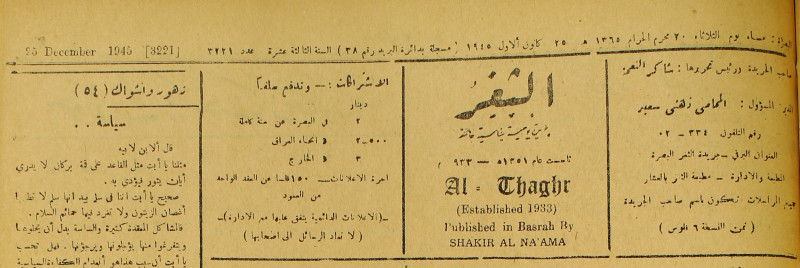 البصرة : مساء يوم الثلاثاء ٢٠ محرم الحرام ١٣٦٥ هـ ٢٥ كانون الاول ١٩٤٥ ( مسجلة بدائرة البريد رقم ٣٨ ) السنة الثالثة عشرة عدد ٣٢٢١
25 December 1945 [3221]
صاحب الجريدة ورئيس تحريرها : شاكر النعمة
المسؤول : المحامي زهني سعيد
رقم التلفون ٣٣٤ — ٠٢
العنوان البرقي — جريدة الثغر البصرة
المراسلات تكون باسم صاحب الجريدة
( ثمن النسخة ٦ فلوس )
الثغر
جريدة يومية سياسية
تأسست عام ١٣٥١ هـ — ٩٣٣ م
Al - Thaghr
(Established 1933)
Published in Basrah By
SHAKIR AL NA'AMA
الاشتراكات : — وتدفع سلفا
دينار
٢ في البصرة عن سنة كاملة
٥٠٠-٢ « انحاء العراق
٣ « الخارج
اجرة الاعلانات — ١٥٠ فلسا عن العقد الواحد
من العمود
— ( الاعلانات الدائمية يتفق عليها مع الادارة ) —
( لا تعاد الرسائل الى اصحابها )
زهور واشواك ( ٥٤ )
سياسة . .
قال الابن لابيه
مثلنا يا أبت مثل القاعد على قمة بركان لا يدري
أيان يثور فيؤدي به .
صحيح يا أبت اننا في سلم بيد انها سلم لا
أغصان الزيتون ولا تغرد فيها حمائم السلام .
فالمشاكل المعقدة كثيرة والساسة بدل أن يحلوها